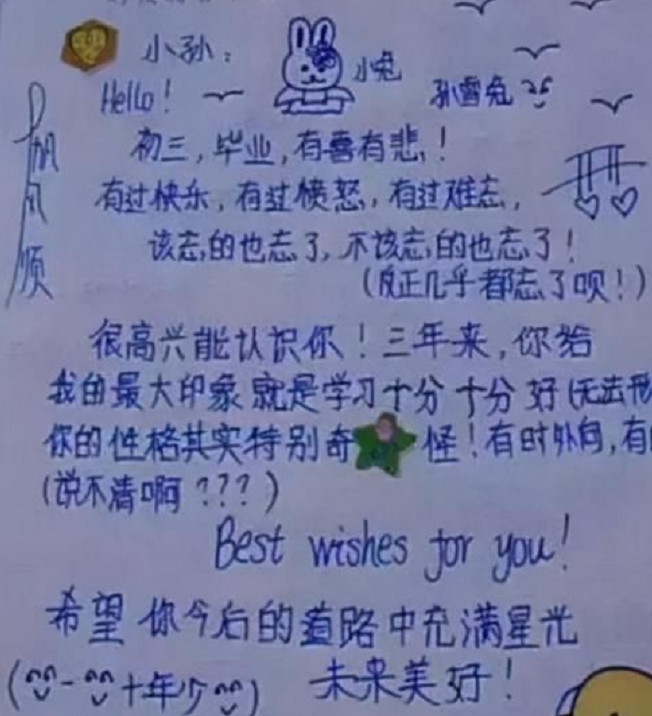 小孙：
Hello！
小兔
孙雪兔
一帆风顺
初三，毕业，有喜有悲！
有过快乐，有过愤怒，有过难忘，
该忘的也忘了，不该忘的也忘了！
（反正几乎都忘了呗！）
很高兴能认识你！三年来，你给
我的最大印象就是学习十分十分好（无法形
你的性格其实特别奇怪！有时外向，有
（说不清啊？？？）
Best wishes for you!
希望你今后的道路中充满星光
十年少
未来美好！